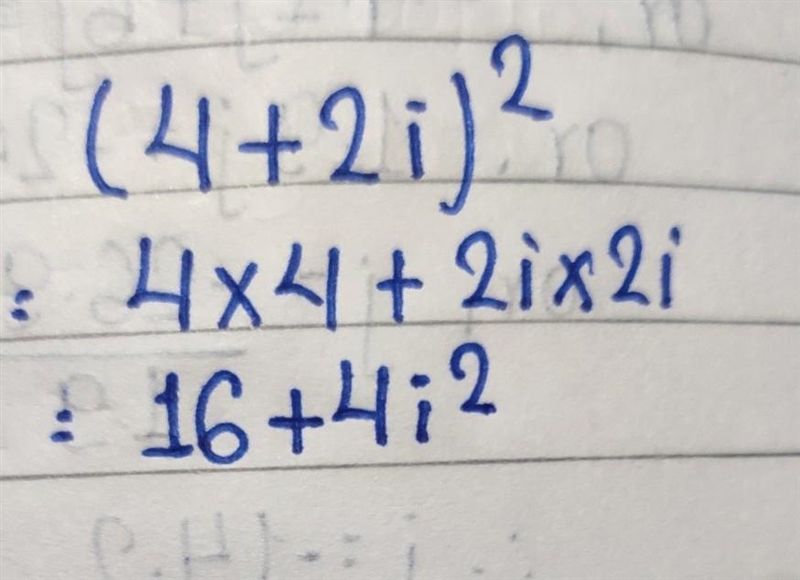 (4+2i)²
= 4×4 + 2i×2i
= 16+4i²